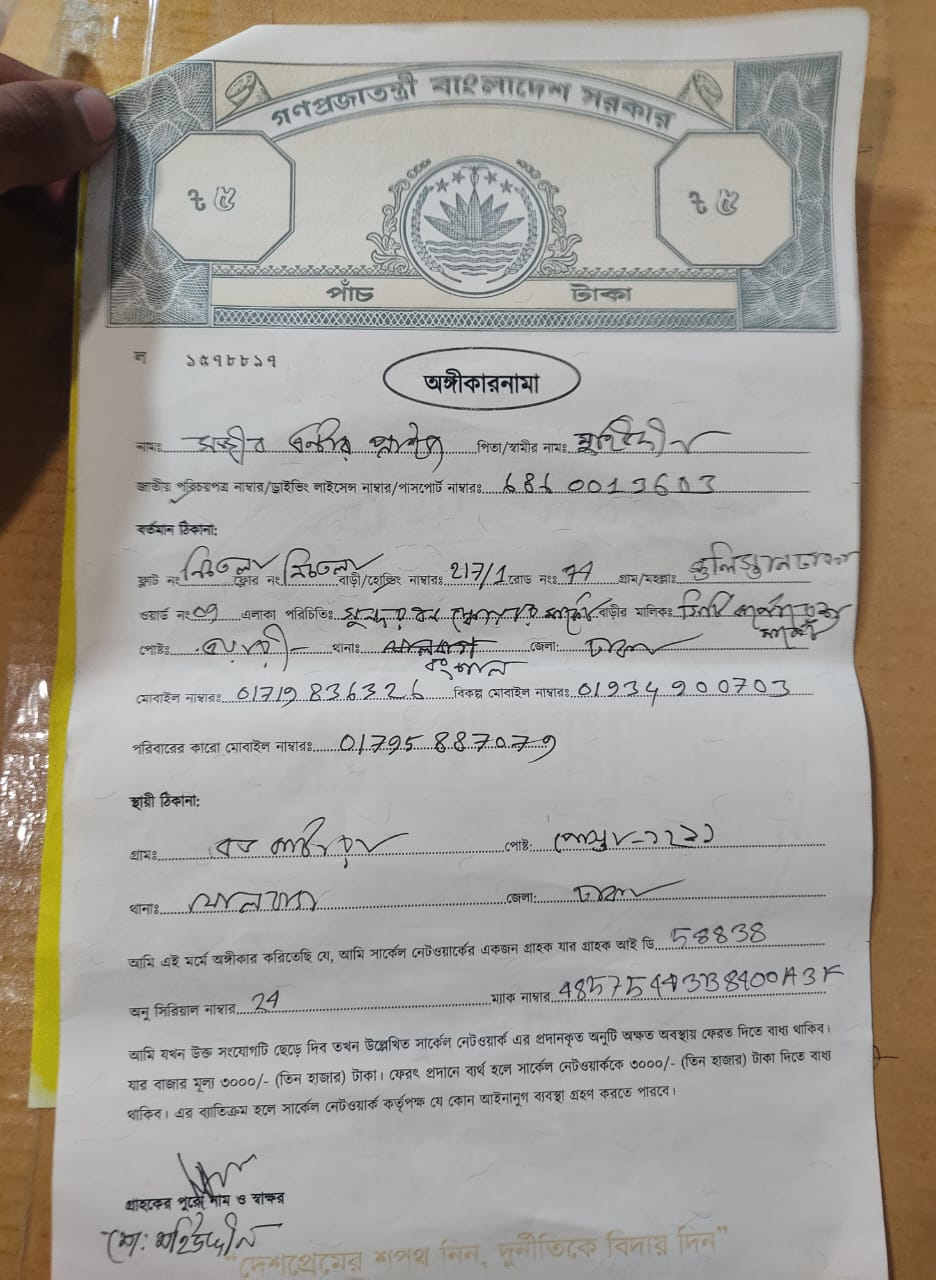 গণপ্রজাতন্ত্রী বাংলাদেশ সরকার
৳ ৫ ৳ ৫
পাঁচ টাকা
ন ১৫৭৮৮১৭
অঙ্গীকারনামা
নামঃ পিতা/স্বামীর নামঃ
জাতীয় পরিচয়পত্র নাম্বার/ড্রাইভিং লাইসেন্স নাম্বার/পাসপোর্ট নাম্বারঃ 6860013603
বর্তমান ঠিকানা:
ফ্লাট নং নিচতলা ফ্লোর নং নিচতলা বাড়ী/হোল্ডিং নাম্বারঃ 217/1 রোড নংঃ 74 গ্রাম/মহল্লাঃ
ওয়ার্ড নংঃ এলাকা পরিচিতিঃ সুন্দরবন স্কোয়ার মার্কেট বাড়ীর মালিকঃ সিটি
মার্কেট
পোষ্টঃ থানাঃ জেলা: ঢাকা
বংশাল
মোবাইল নাম্বারঃ 01719836326 বিকল্প মোবাইল নাম্বারঃ 01934900703
পরিবারের কারো মোবাইল নাম্বারঃ 01795887079
স্থায়ী ঠিকানা:
গ্রামঃ বড় পোষ্ট:
থানাঃ জেলা: ঢাকা
আমি এই মর্মে অঙ্গীকার করিতেছি যে, আমি সার্কেল নেটওয়ার্কের একজন গ্রাহক যার গ্রাহক আই ডি 58838
অনু সিরিয়াল নাম্বার 24 ম্যাক নাম্বার
আমি যখন উক্ত সংযোগটি ছেড়ে দিব তখন উল্লেখিত সার্কেল নেটওয়ার্ক এর প্রদানকৃত অনুটি অক্ষত অবস্থায় ফেরত দিতে বাধ্য থাকিব।
যার বাজার মূল্য ৩০০০/- (তিন হাজার) টাকা। ফেরৎ প্রদানে ব্যর্থ হলে সার্কেল নেটওয়ার্ককে ৩০০০/- (তিন হাজার) টাকা দিতে বাধ্য
থাকিব। এর ব্যতিক্রম হলে সার্কেল নেটওয়ার্ক কর্তৃপক্ষ যে কোন আইনানুগ ব্যবস্থা গ্রহণ করতে পারবে।
গ্রাহকের পুরো নাম ও স্বাক্ষর
মো: মহিউদ্দীন
"দেশপ্রেমের শপথ নিন, দুর্নীতিকে বিদায় দিন"